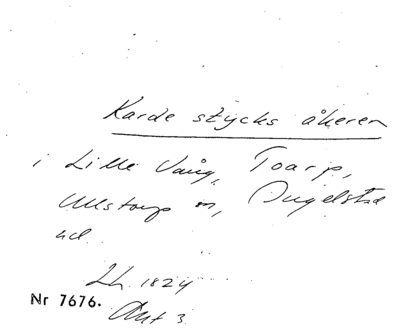 Karde stycks åkeren
i Lille Vång, Toarp,
Ullstorp sn, Ingelstad
hd.
Lh. 1824
Nr 7676.
Akt 3